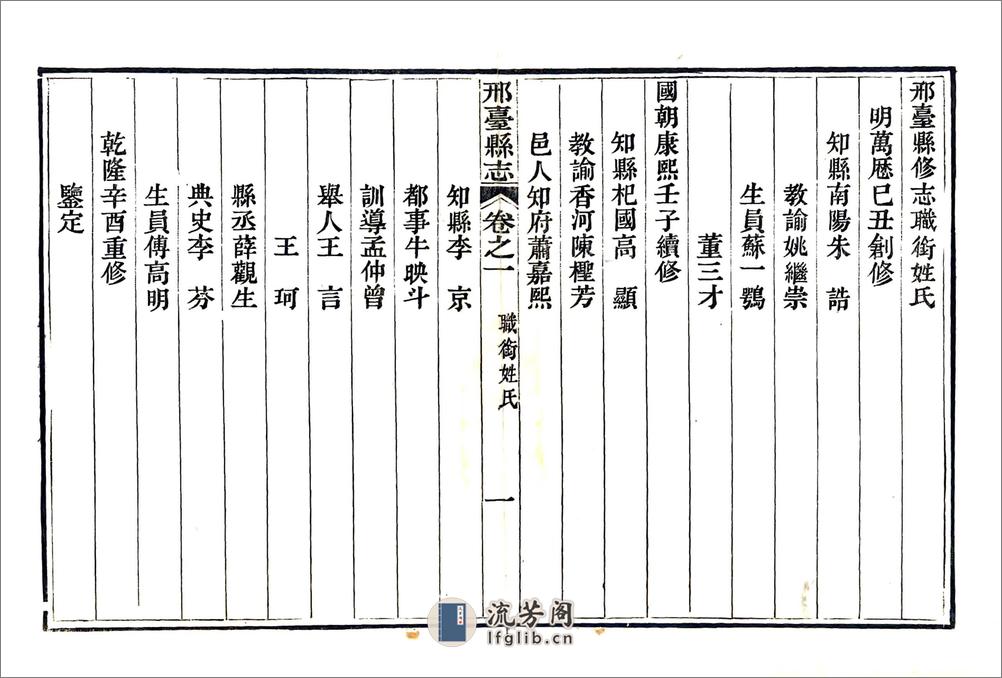 邢臺縣修志職銜姓氏
明萬厯己丑創修
知縣南陽朱　誥
教諭姚繼崇
生員蘇一鶚
董三才
國朝康熙壬子續修
知縣杞國高　顯
教諭香河陳㯪芳
邑人知府蕭嘉熙
邢臺縣志　卷之一　職銜姓氏　一
知縣李　京
都事牛映斗
訓導孟仲曾
舉人王　言
王　珂
縣丞薛觀生
典史李　芬
生員傅高明
乾隆辛酉重修
鑒定
流芳阁
lfglib.cn